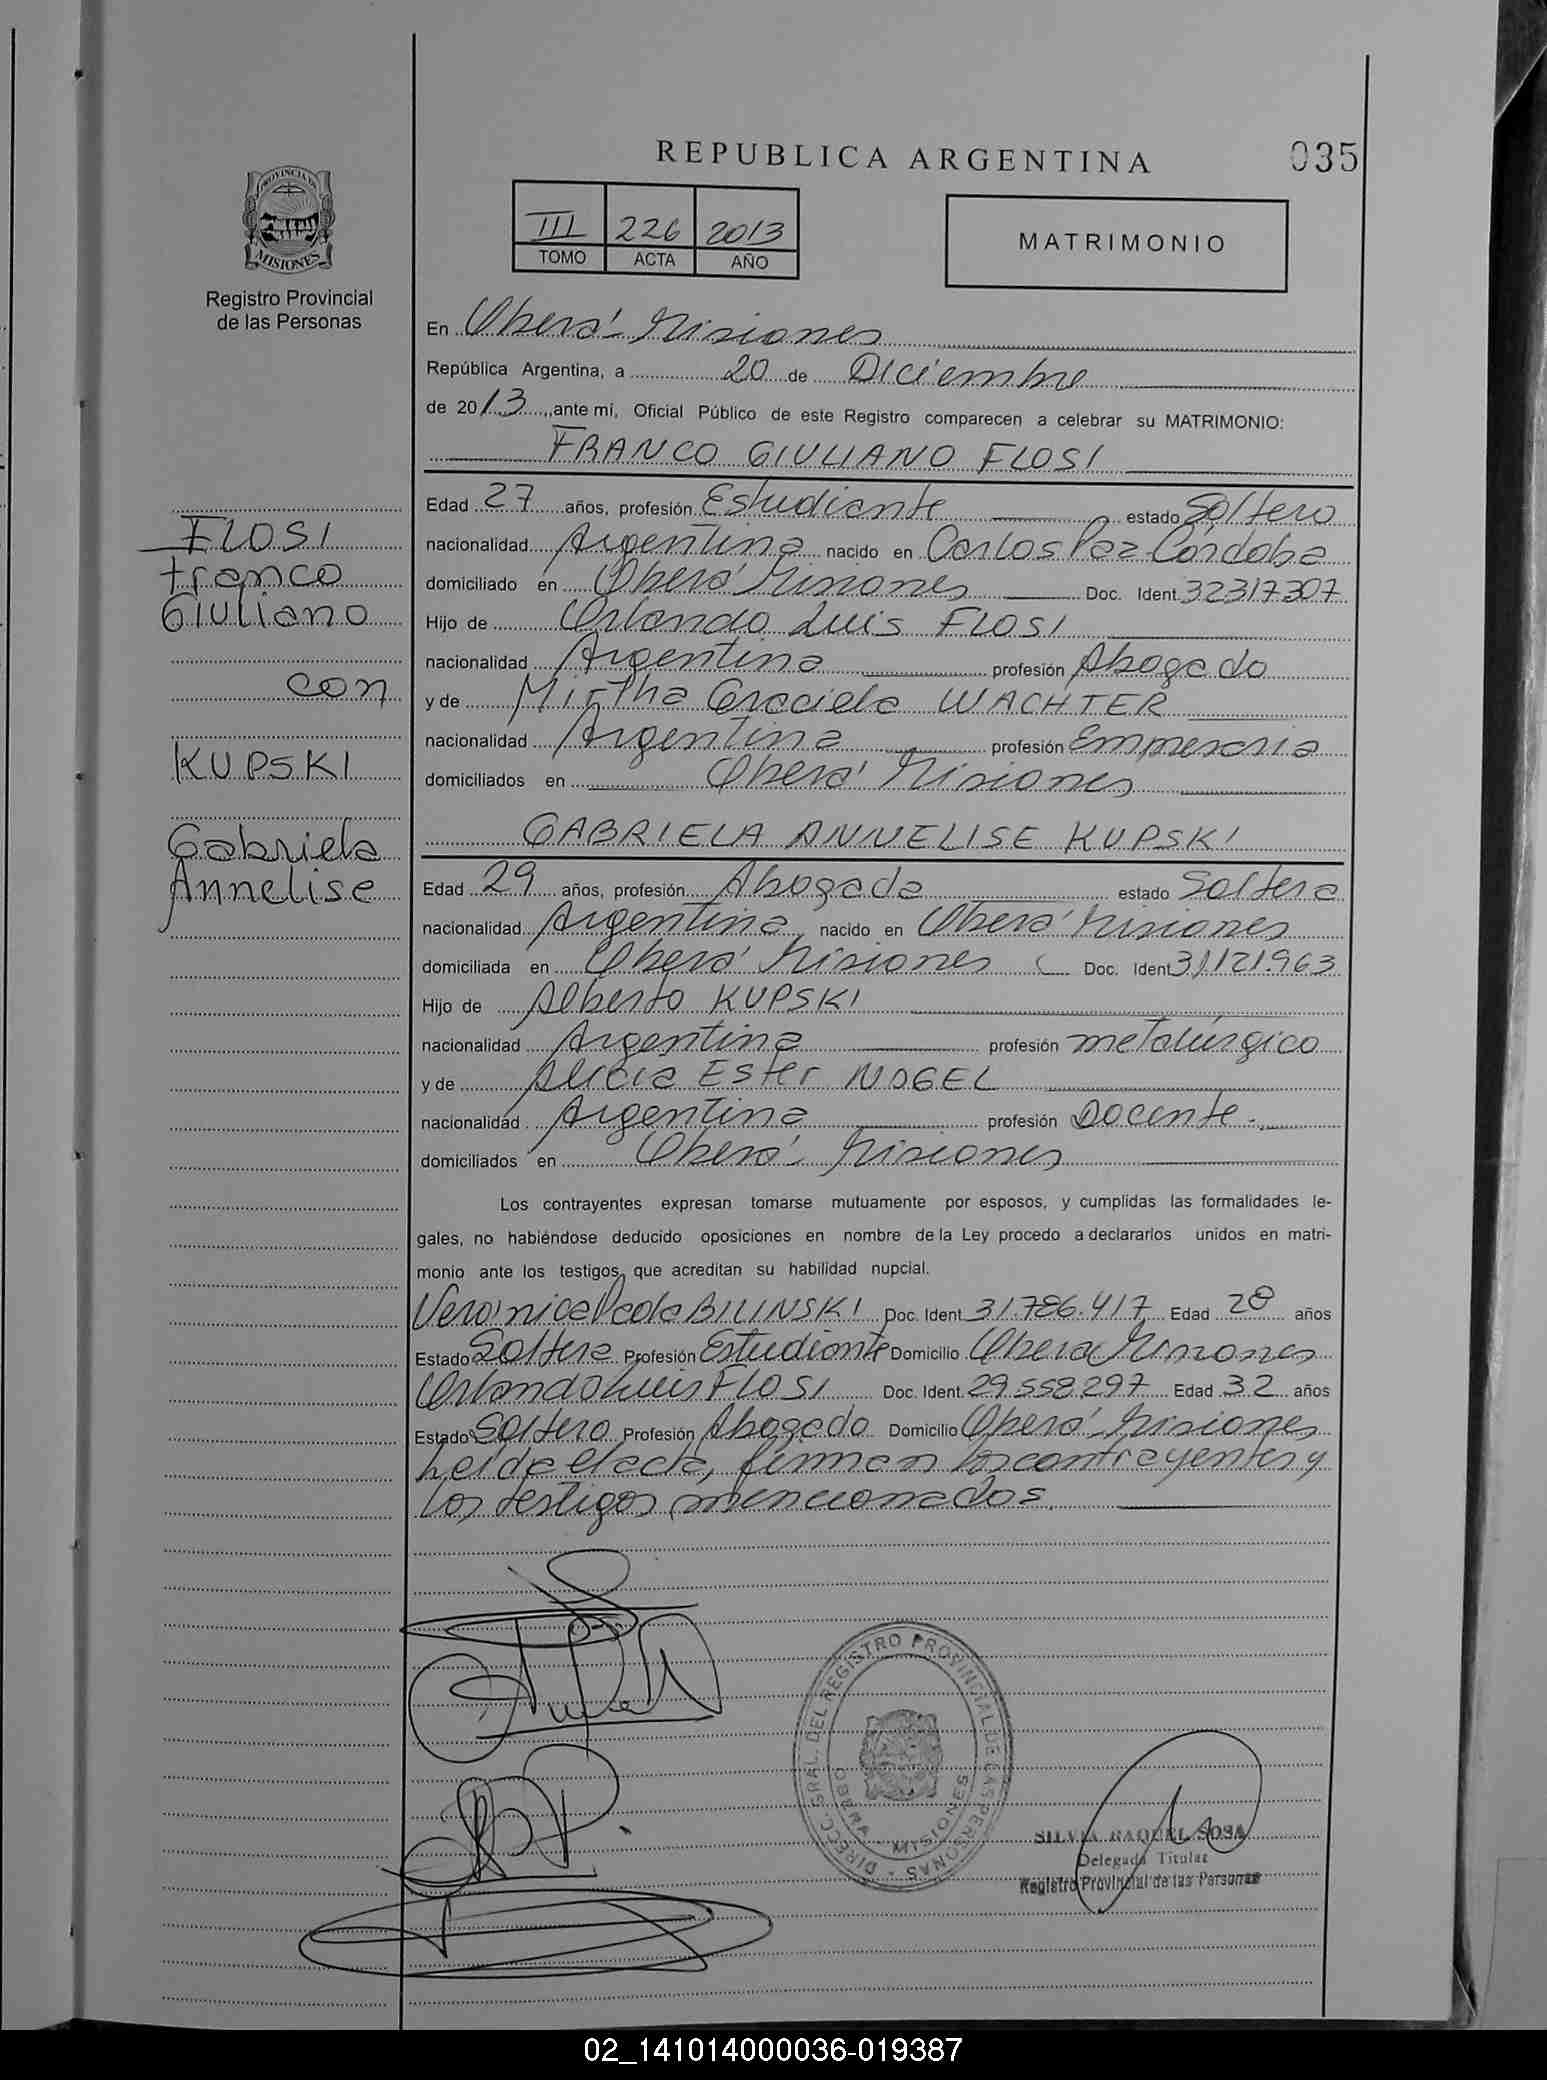 REPUBLICA ARGENTINA
035
PROVINCIA DE
MISIONES
Registro Provincial
de las Personas
III 226 2013
TOMO ACTA AÑO
MATRIMONIO
En Oberá - Misiones
República Argentina, a 20 de Diciembre
de 2013, ante mí, Oficial Público de este Registro comparecen a celebrar su MATRIMONIO:
FRANCO GIULIANO FLOSI
Edad 27 años, profesión Estudiante estado Soltero
nacionalidad Argentina nacido en Carlos Paz - Córdoba
domiciliado en Oberá Misiones Doc. Ident. 32317307
Hijo de Orlando Luis FLOSI
nacionalidad Argentina profesión Abogado
y de Mirtha Graciela WACHTER
nacionalidad Argentina profesión Empresaria
domiciliados en Oberá Misiones
GABRIELA ANNELISE KUPSKI
Edad 29 años, profesión Abogada estado Soltera
nacionalidad Argentina nacido en Oberá Misiones
domiciliada en Oberá Misiones Doc. Ident 31.121.963
Hijo de Alberto KUPSKI
nacionalidad Argentina profesión metalúrgico
y de Alicia Ester NOGEL
nacionalidad Argentina profesión Docente.
domiciliados en Oberá - Misiones
Los contrayentes expresan tomarse mutuamente por esposos, y cumplidas las formalidades le-
gales, no habiéndose deducido oposiciones en nombre de la Ley procedo a declararlos unidos en matri-
monio ante los testigos, que acreditan su habilidad nupcial.
Verónica Paola BILINSKI Doc. Ident 31.786.417 Edad 28 años
Estado Soltera Profesión Estudiante Domicilio Oberá Misiones
Orlando Luis FLOSI Doc. Ident. 29.558.297 Edad 32 años
Estado Soltero Profesión Abogado Domicilio Oberá - Misiones
Leida el acta, firman los contrayentes y
los testigos mencionados.
FLOSI
Franco
Giuliano
con
KUPSKI
Gabriela
Annelise
DIRECC. GRAL. DEL REGISTRO PROVINCIAL DE LAS PERSONAS
OBERA - MISIONES
SILVIA RAQUEL SOSA
Delegada Titular
Registro Provincial de las Personas
02_141014000036-019387